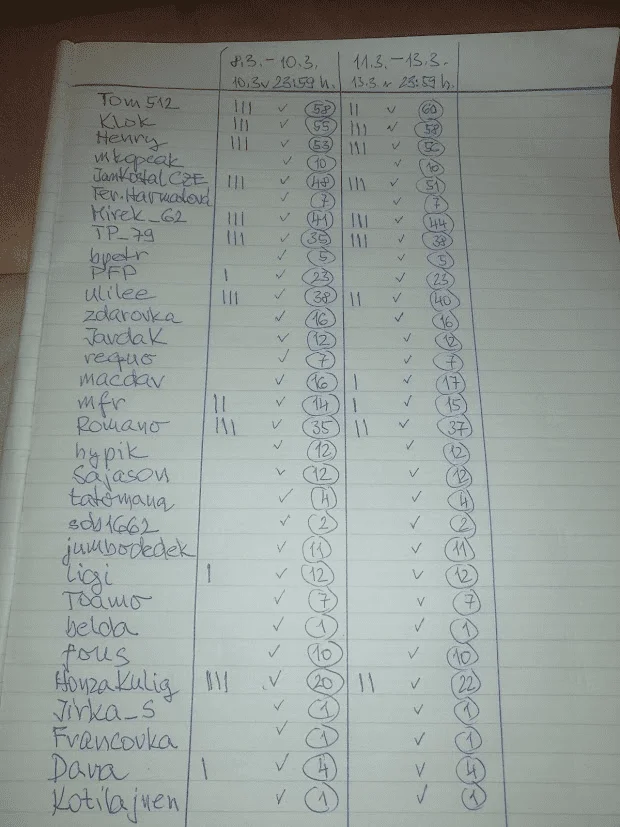 8.3. – 10.3. 11.3. – 13.3.
10.3 v 23:59 h. 13.3 v 23:59 h.
Tom512 III ✓ 58 II ✓ 60
Klok III ✓ 55 III ✓ 58
Henry III ✓ 53 III ✓ 56
✓ 10 ✓ 10
JamKostalCZE III ✓ 48 III ✓ 51
✓ 7 ✓ 7
Mirek_62 III ✓ 41 III ✓ 44
TP_79 III ✓ 35 III ✓ 38
bpetr ✓ 5 ✓ 5
PFP I ✓ 23 ✓ 23
ulilee III ✓ 38 II ✓ 40
zdarovka ✓ 16 ✓ 16
Jardak ✓ 12 ✓ 12
requo ✓ 7 ✓ 7
macdav ✓ 16 I ✓ 17
mfr II ✓ 14 I ✓ 15
Romano III ✓ 35 II ✓ 37
hypik ✓ 12 ✓ 12
Sajason ✓ 12 ✓ 12
tatomana ✓ 4 ✓ 4
sob1662 ✓ 2 ✓ 2
jumbodedek ✓ 11 ✓ 11
ligi I ✓ 12 ✓ 12
✓ 7 ✓ 7
belda ✓ 1 ✓ 1
fous ✓ 10 ✓ 10
HonzaKulig IIII ✓ 20 II ✓ 22
Jirka_S ✓ 1 ✓ 1
Francovka ✓ 1 ✓ 1
Dava I ✓ 4 ✓ 4
Kotilajnen ✓ 1 ✓ 1